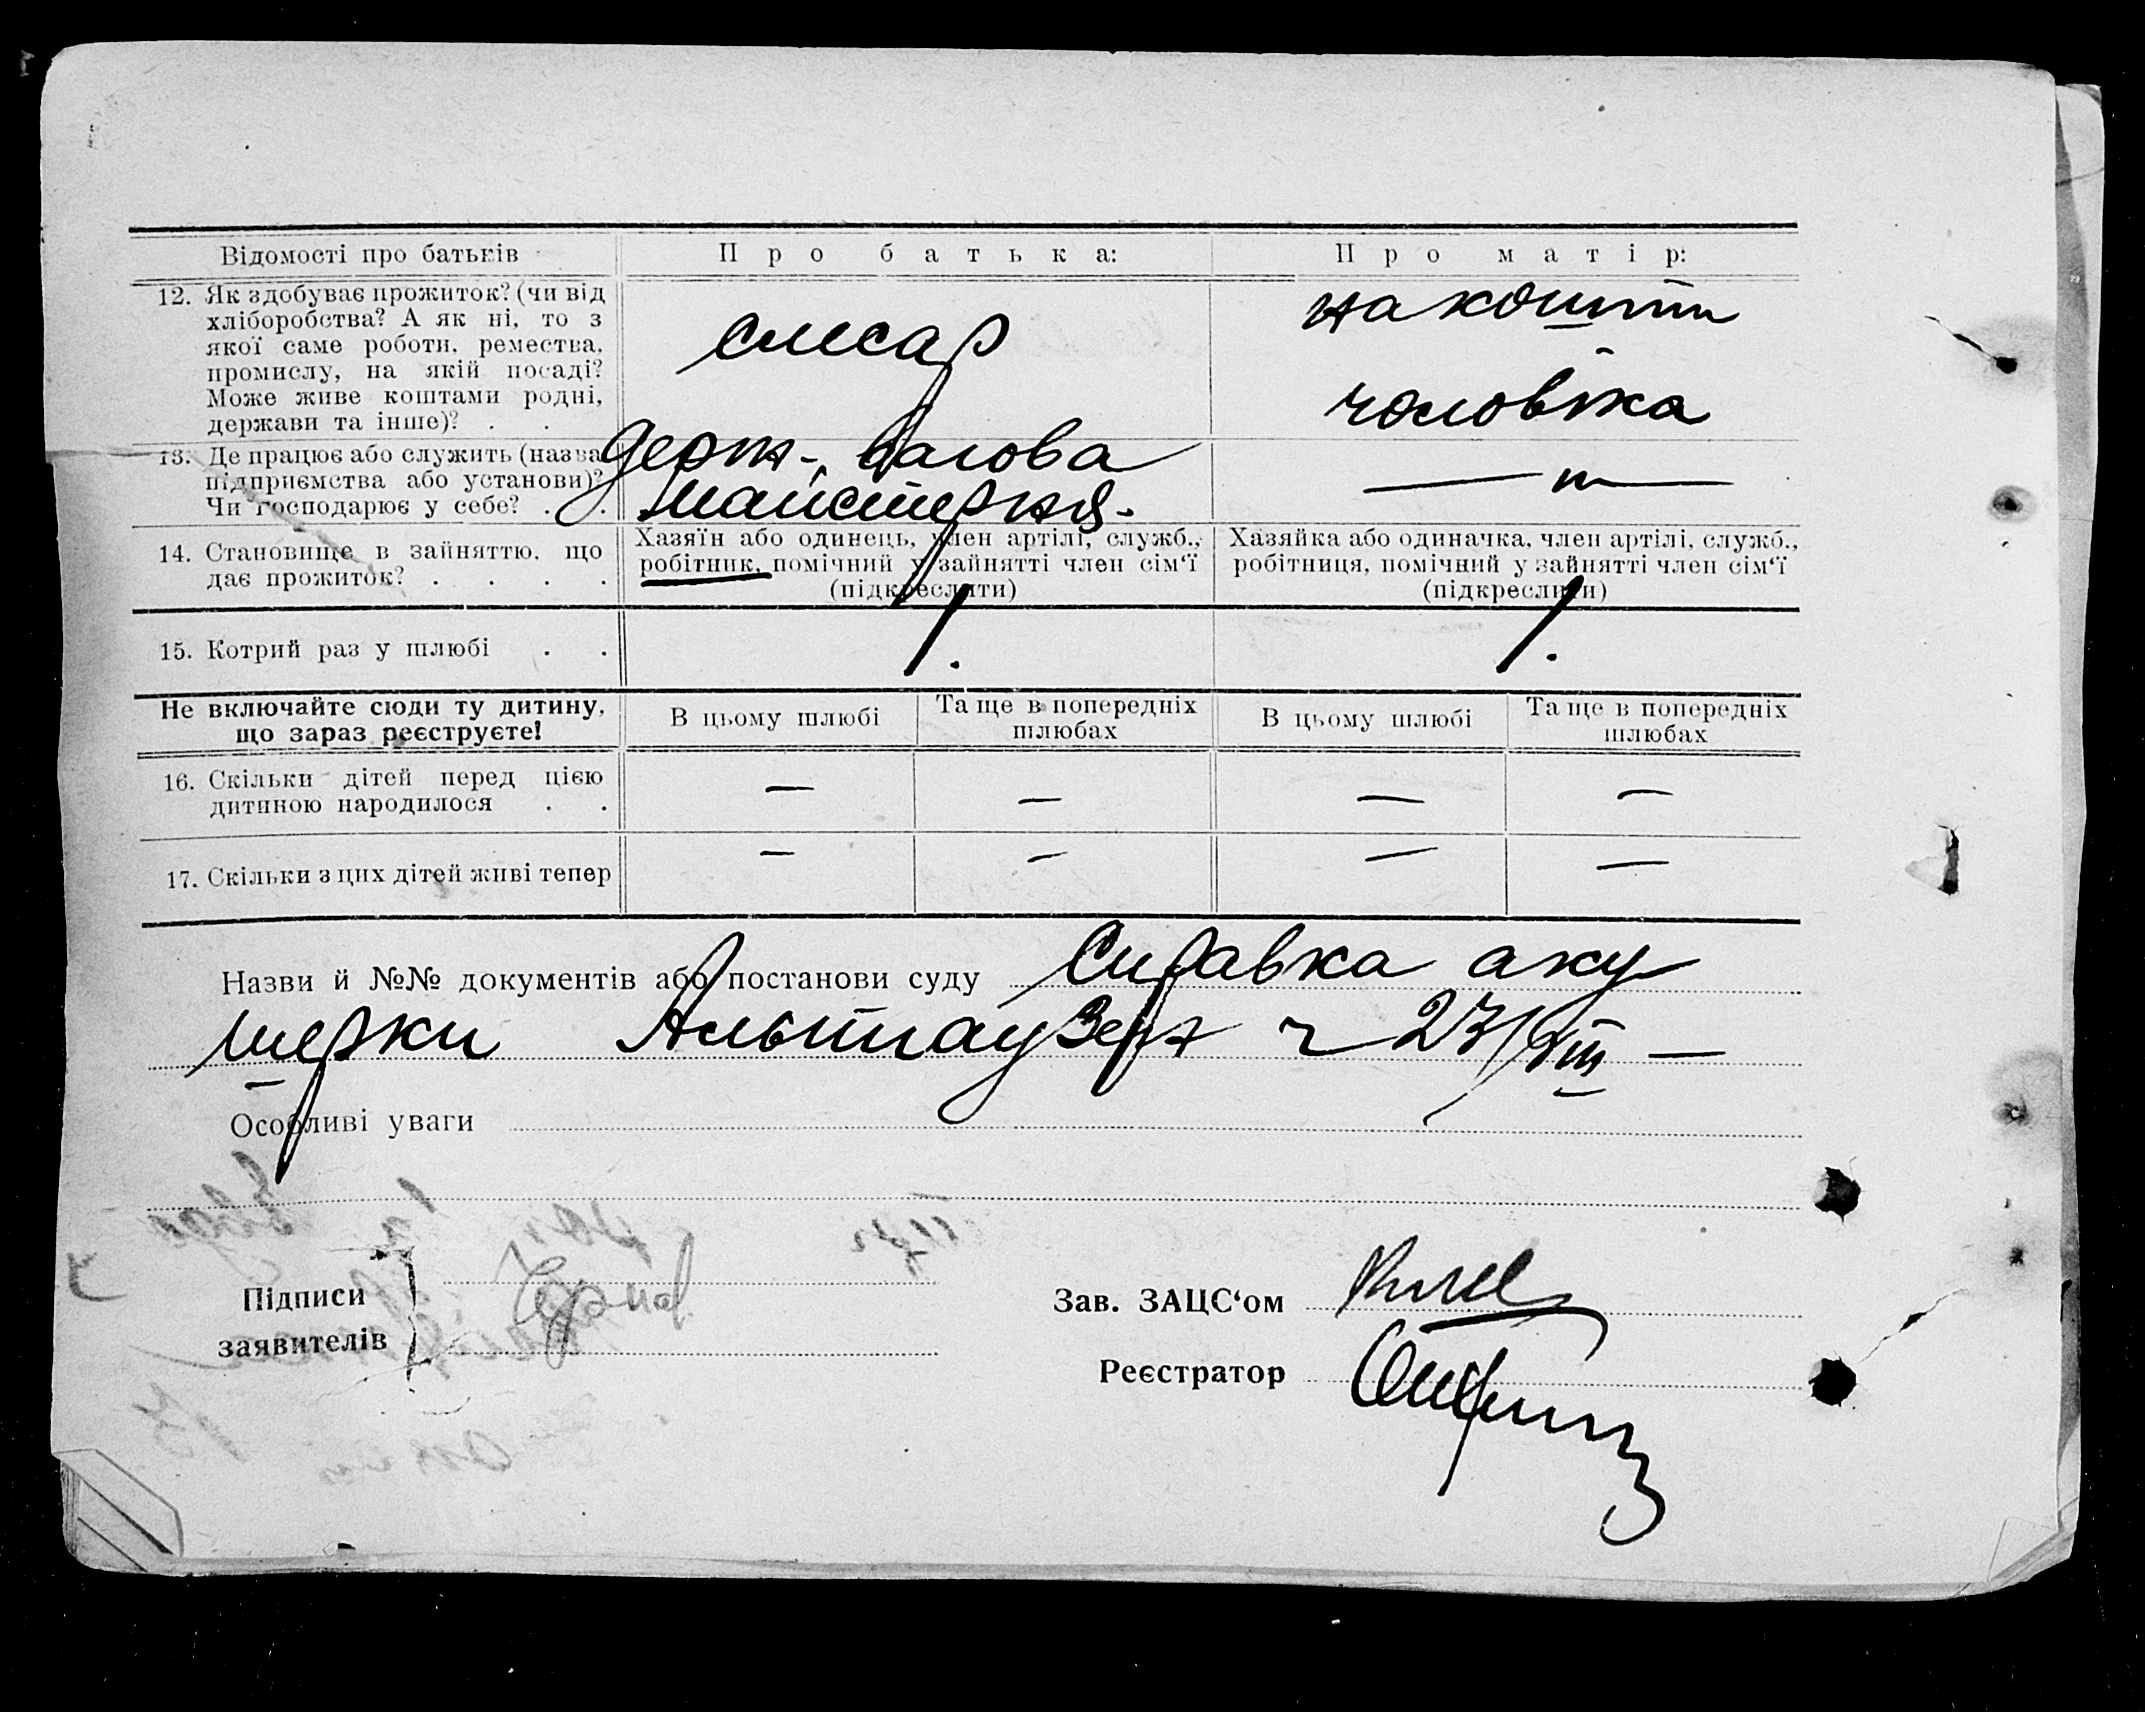 Відомості про батьків Про батька: Про матір:
12. Як здобуває прожиток? (чи від
хліборобства? А як ні, то з
якої саме роботи, ремества,
промислу, на якій посаді?
Може живе коштами родні,
держави та інше)? . .
слесар
на кошти
чоловіка
13. Де працює або служить (назва
підприємства або установи)?
Чи господарює у себе? . .
Держ. вагова
майстерня.
— " —
14. Становище в зайняттю, що
дає прожиток? . . . .
Хазяїн або одинець, член артілі, служб.,
робітник, помічний у зайнятті член сім‘ї
(підкреслити)
Хазяйка або одиначка, член артілі, служб.,
робітниця, помічний у зайнятті член сім‘ї
(підкреслити)
15. Котрий раз у шлюбі . . 1. 1.
Не включайте сюди ту дитину,
що зараз реєструєте!
В цьому шлюбі
Та ще в попередніх
шлюбах
В цьому шлюбі
Та ще в попередніх
шлюбах
16. Скільки дітей перед цією
дитиною народилося . .
— — — —
17. Скільки з цих дітей живі тепер — — — —
Назви й №№ документів або постанови суду Справка аку
шерки Альтгаузен 27/VIII —
Особливі уваги
Підписи
заявителів
Зав. ЗАЦС‘ом
Реєстратор